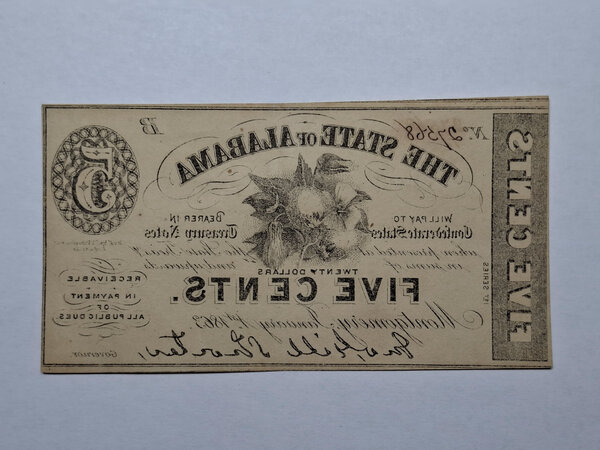 No. 27568
B
THE STATE OF ALABAMA
5
WILL PAY TO BEARER IN
Confederate States Treasury Notes
when presented at the State Treas'y
in sums of TWENTY DOLLARS and upwards
FIVE CENTS.
Montgomery, January 1st 1863
Jno. Gill Shorter,
Governor.
RECEIVABLE
IN PAYMENT
OF
ALL PUBLIC DUES
FIVE CENTS
1st SERIES